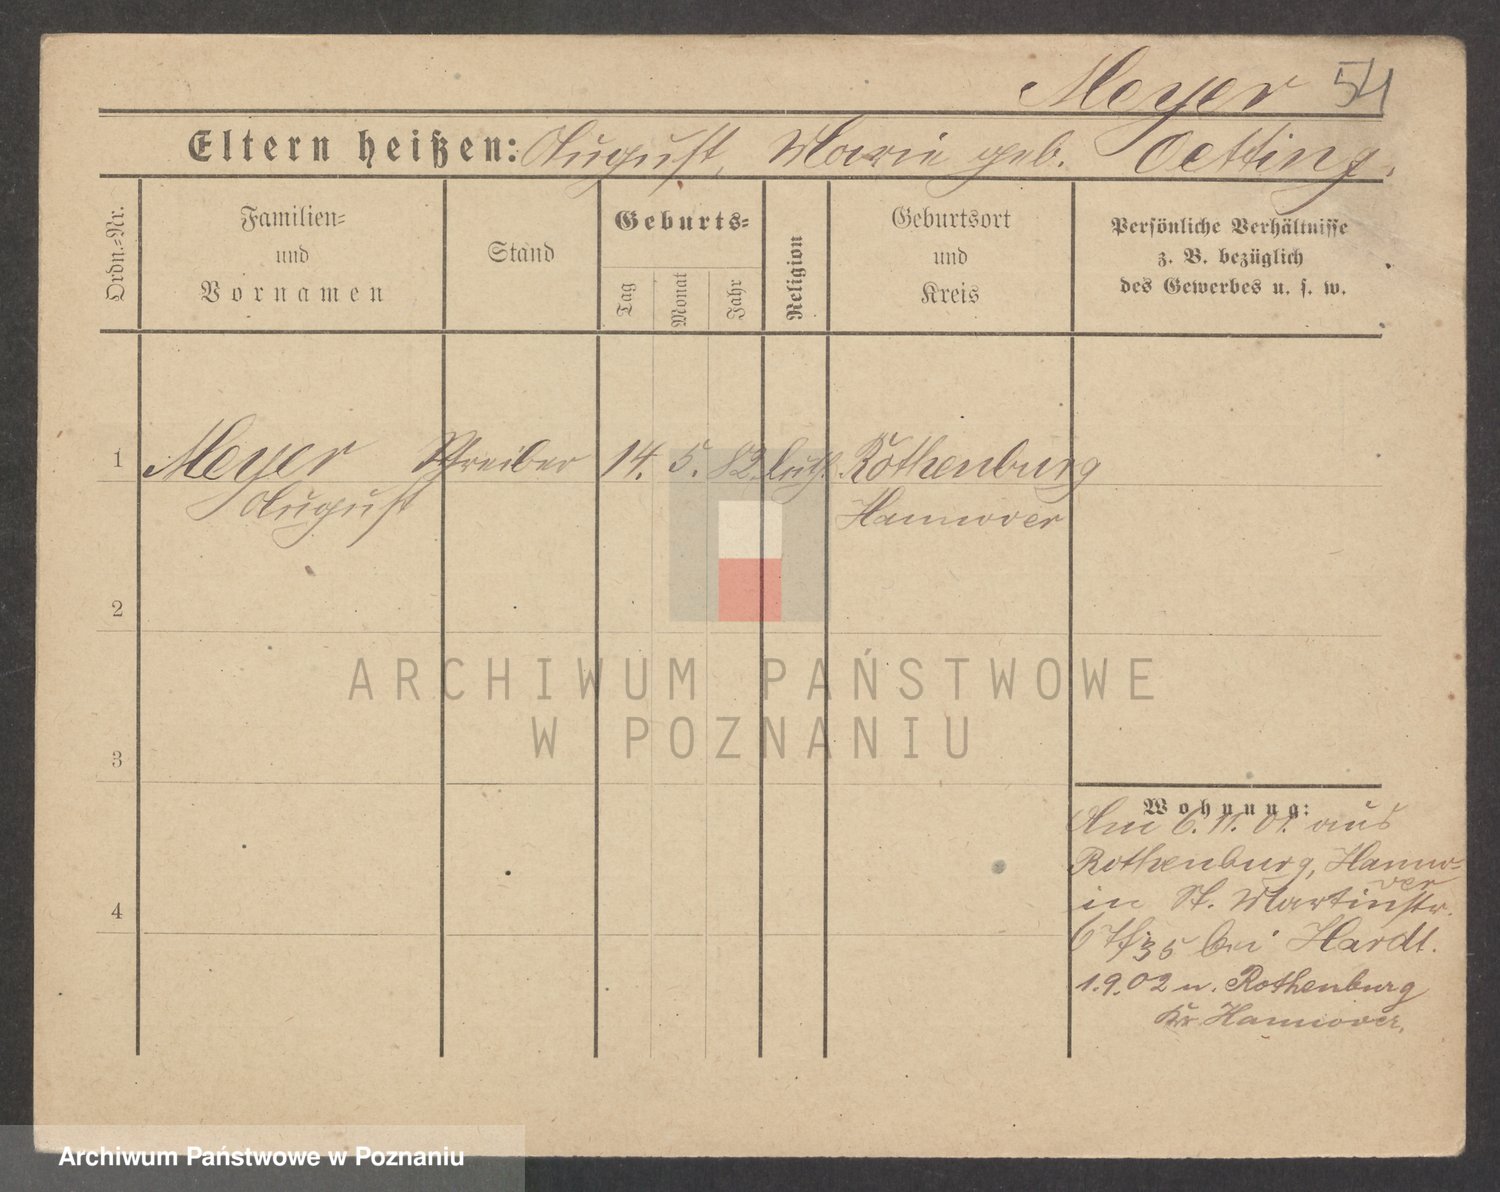 Meyer 54
Eltern heißen: August, Marie geb. Oetting.
Ordn.=Nr.
Familien=
und
Vornamen
Stand
Geburts=
Tag
Monat
Jahr
Religion
Geburtsort
und
Kreis
Persönliche Verhältnisse
z. B. bezüglich
des Gewerbes u. s. w.
1 Meyer Schreiber 14. 5. 82 luth. Rothenburg
August Hannover
2
ARCHIWUM PAŃSTWOWE
W POZNANIU
3
Wohnung:
Am 6. 11. 01. aus
Rothenburg, Hanno-
ver
in St. Martinstr.
bei Hardt.
1.9.02 n. Rothenburg
Kr. Hannover.
4
Archiwum Państwowe w Poznaniu